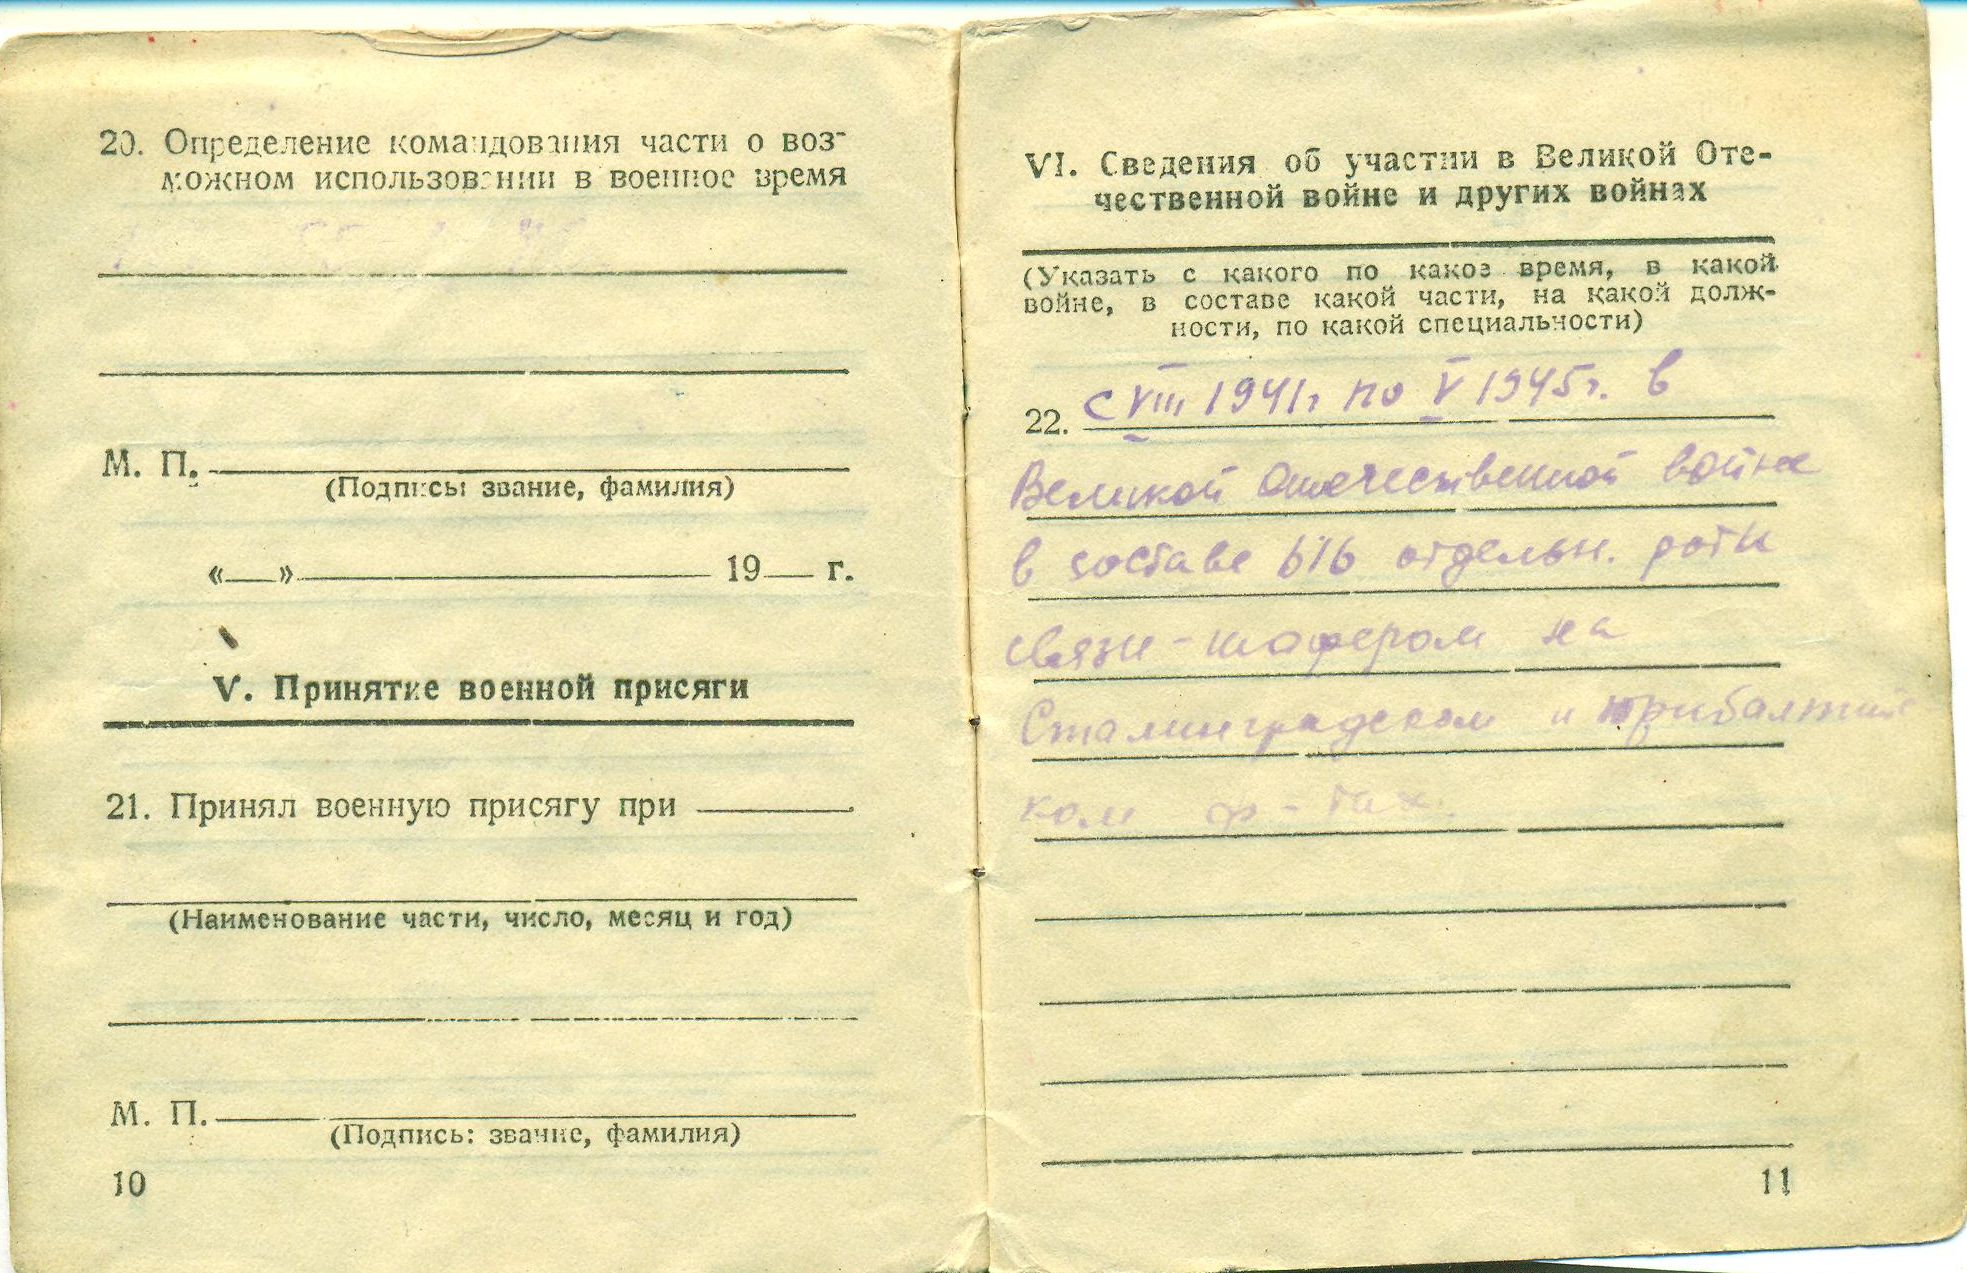 20. Определение командования части о воз-
можном использовании в военное время
М. П.
(Подпись: звание, фамилия)
«__» 19__ г.
V. Принятие военной присяги
21. Принял военную присягу при
(Наименование части, число, месяц и год)
М. П.
(Подпись: звание, фамилия)
10
VI. Сведения об участии в Великой Оте-
чественной войне и других войнах
(Указать с какого по какое время, в какой
войне, в составе какой части, на какой долж-
ности, по какой специальности)
22. с VIII 1941г по V 1945г. в
Великой Отечественной войне
в составе 616 отдельн. роты
связи - шофером на
Сталинградском и Прибалтийс
ком ф-тах.
11